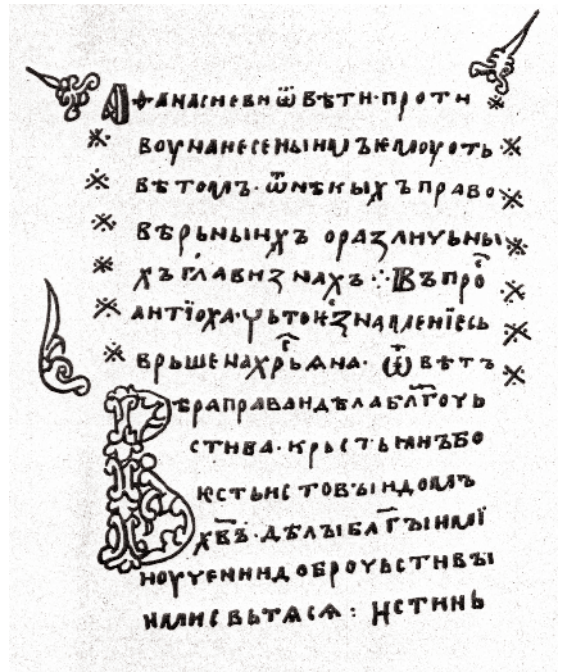 АѲАНАСИЕВИ ѾВѢТИ · ПРОТИ
ВОУ НАНЕСЕНЫИМЪ ѤМОУ ОТЬ
ВѢТОМЪ · Ѿ НѢКЫХЪ ПРАВО
ВѢРЬНЫИХЪ О РАЗЛИЧЬНЫ
ХЪ ГЛАВИЗНАХЪ ⁘ ВЪПРОⷭ҇
АНТЇОХА · ЧЬТО Ѥⷭ ЗНАМЛЕНЇЕ СЬ
ВРЬШЕНА ХРЬⷭ҇ꙖНА · ѾВѢТЪ
ВѢРА ПРАВА И ДѢЛА БЛ҃ГОЧЬ
СТИВА · КРЬСТЬꙖНЪ БО
ѤСТЬ ИСТОВЪИ ДОМЪ
ХВ҃Ъ · ДѢЛЫ БЛ҃ГЪИМИ Ї
НОУЧЕНИИ ДОБРОЧЬСТИВЪI
ИМИ СВЬТѦСѦ : ИСТИНЬ